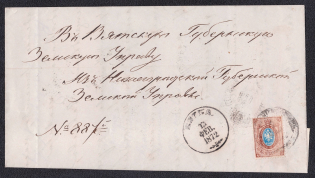 Въ Вятскую Губернскую
Земскую Управу
Изъ Нижегородской Губернской
Земской Управы.
№ 887
ВЯТКА
13
ФЕВ.
1872